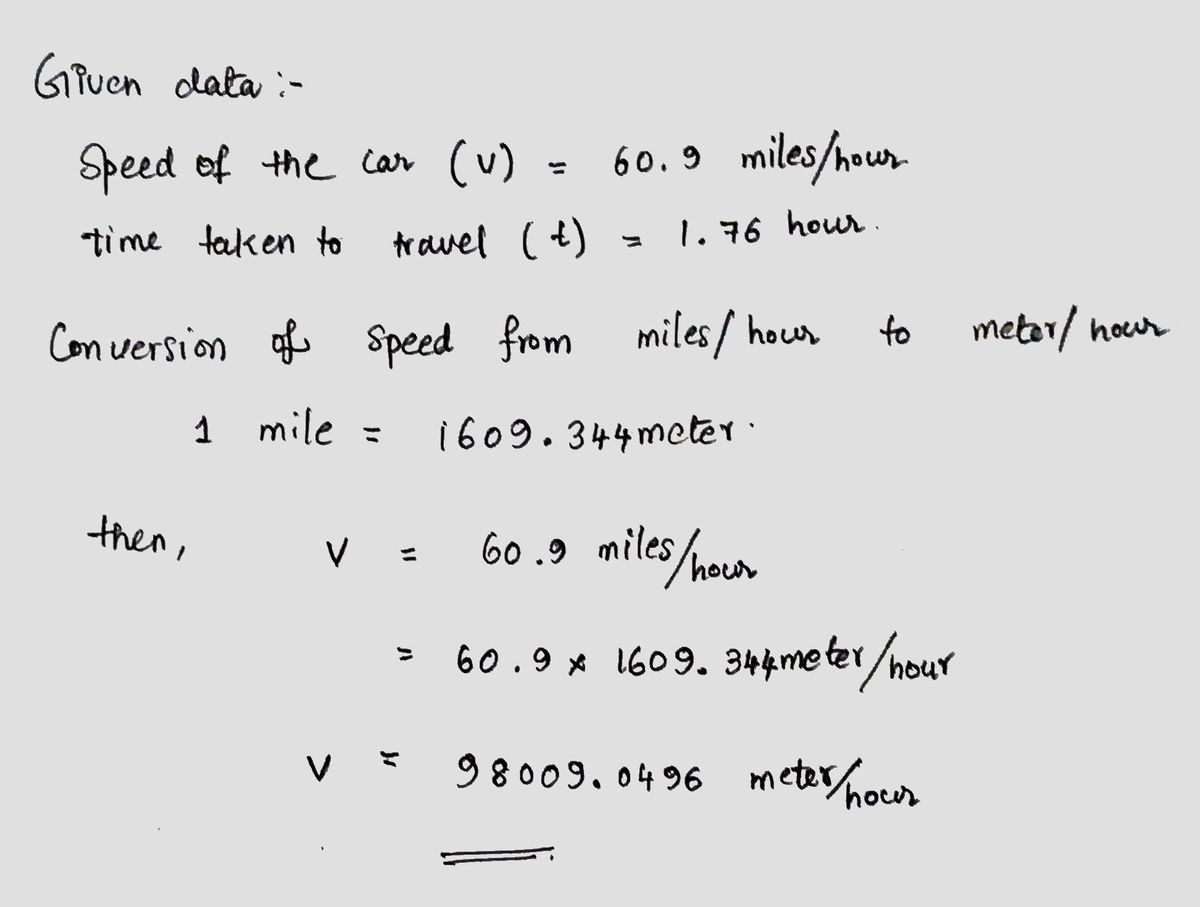 Given data :-
Speed of the car (v) = 60.9 miles/hour
time taken to travel (t) = 1.76 hour.
Conversion of speed from miles/hour to meter/hour
1 mile = 1609.344 meter.
then, v = 60.9 miles/hour
= 60.9 × 1609.344 meter/hour
v = 98009.0496 meter/hour